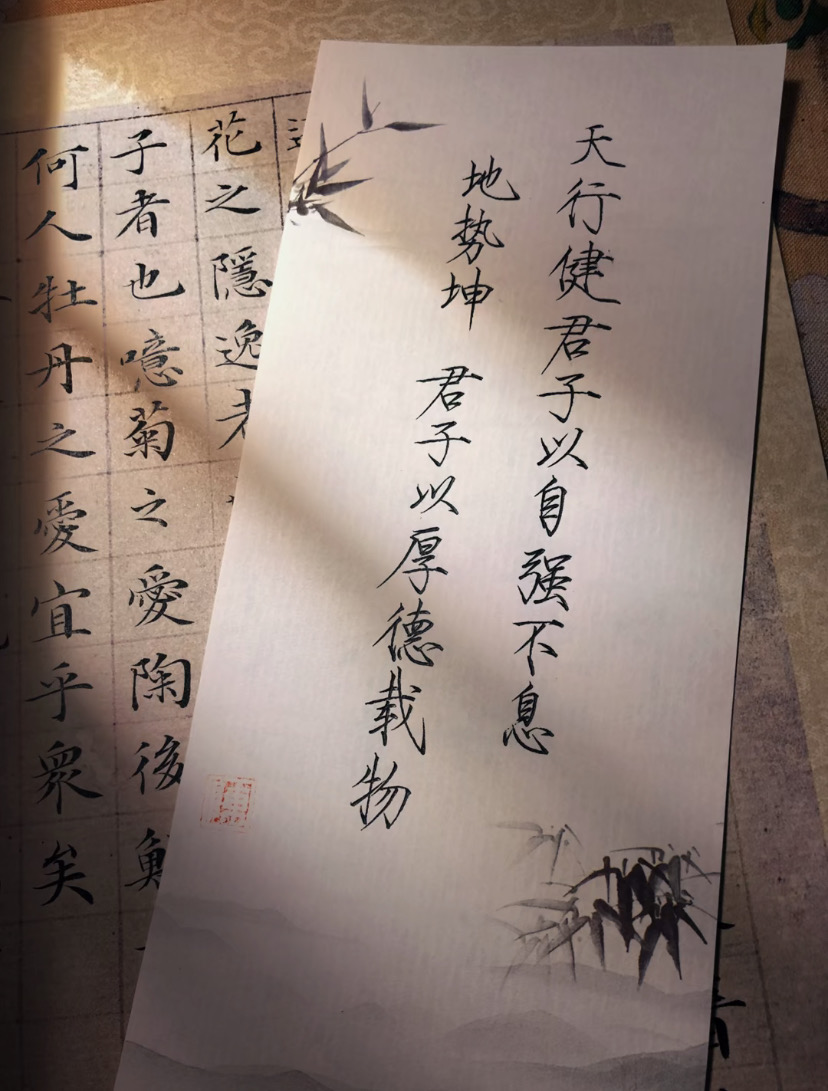 天行健君子以自强不息
地势坤 君子以厚德载物
花之隱逸者
子者也噫菊之愛陶後鮮
何人牡丹之愛宜乎衆矣